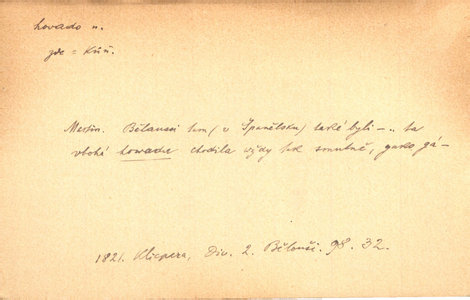 hovado n.
zde = Kůň.
Mertin. Bělausi tam (v Španělsku) také byli — .. ta
vbohá howada chodila wždy tak smutně, gako gá —
1821. Klicpera, Div. 2. Bělouši. 98. 32.